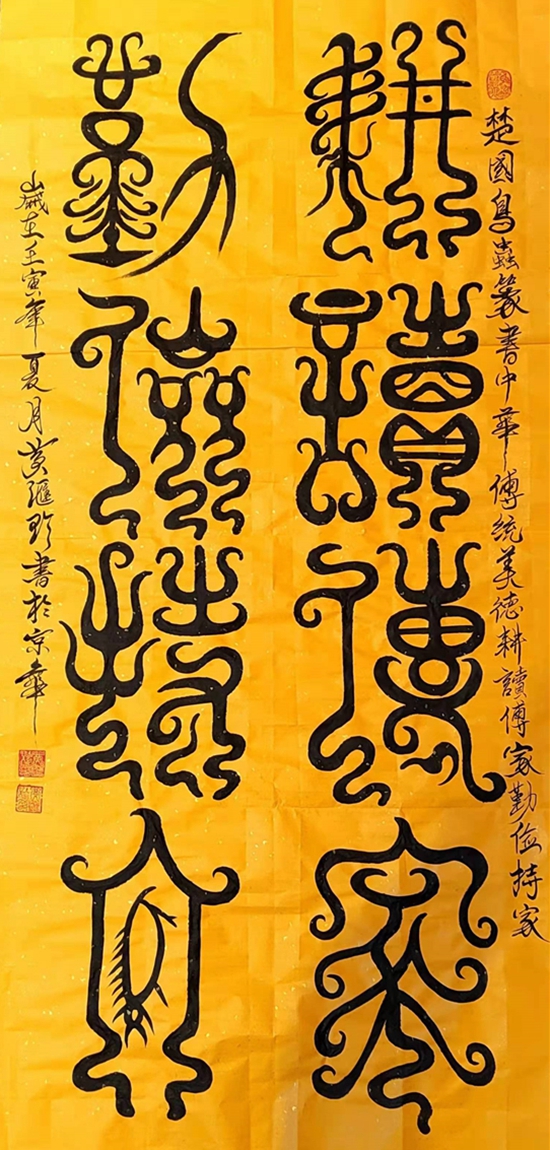 楚國鳥蟲篆書中華傳統美德耕讀傳家勤俭持家
耕讀傳家
勤儉持家
歲在壬寅年夏月黄滙書於京華